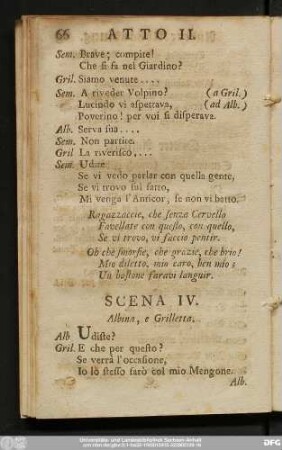 66 ATTO II.
Sem. Brave; compite!
Che si fa nel Giardino?
Gril. Siamo venute....
Sem. A riveder Volpino? (a Gril.)
Lucindo vi aspettava, (ad Alb.)
Poverino! per voi si disperava.
Alb. Serva sua....
Sem. Non partite.
Gril La riverisco,...
Sem. Udite.
Se vi vedo parlar con quella gente,
Se vi trovo sul fatto,
Mi venga l'Anticor, se non vi batto.
Ragazzaccie, che senza Cervello
Favellate con questo, con quello,
Se vi trovo, vi faccio pentir.
Oh che smorfie, che grazie, che brio!
Mio diletto, mio caro, ben mio:
Un bastone faravi languir.
SCENA IV.
Albina, e Grilletta.
Alb Udiste?
Gril. E che per questo?
Se verrà l'occasione,
Io lo stesso farò col mio Mengone.
Alb.
Universitäts- und Landesbibliothek Sachsen-Anhalt
DFG